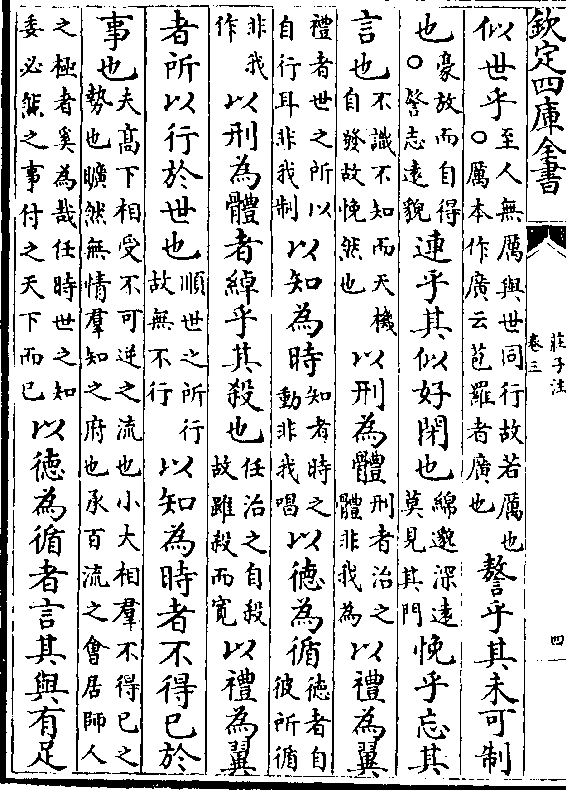 欽定四庫全書
莊子注
卷三
四
似世乎至人無厲與世同行故若厲也○厲本作廣云苞羅者廣也謷乎其未可制
也豪放而自得○謷志遠貌連乎其似好閉也綿邈深遠莫見其門悗乎忘其
言也不識不知而天機自發故悗然也以刑為體刑者治之體非我為以禮為翼
禮者世之所以自行耳非我制以知為時知者時之動非我唱以德為循德者自彼所循
非我作以刑為體者綽乎其殺也任治之自殺故雖殺而寬以禮為翼
者所以行於世也順世之所行故無不行以知為時者不得已於
事也夫高下相受不可逆之流也小大相羣不得已之勢也曠然無情羣知之府也承百流之會居師人
之極者奚為哉任時世之知委必然之事付之天下而已以德為循者言其與有足